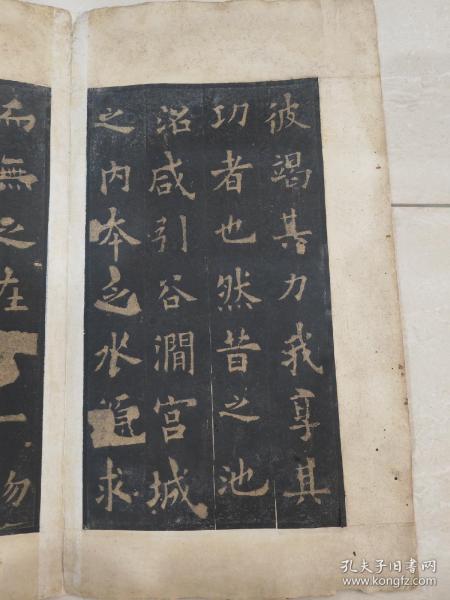 彼竭其力我享其
功者也然昔之池
沼咸引谷澗宮城
之内本乏水源求
而無之在
一物
孔夫子旧书网
www.kongfz.com